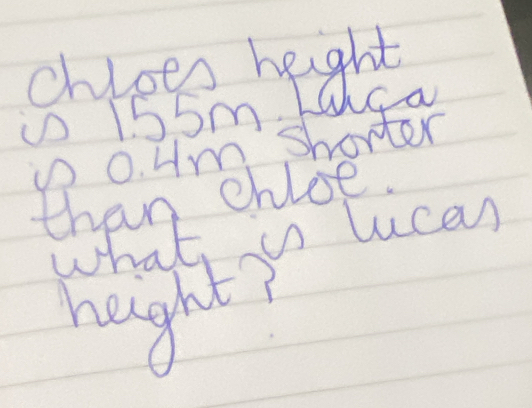 Chloes height
is 1.55m. Luca
is 0.4m shorter
than Chloe.
what is lucas
height?